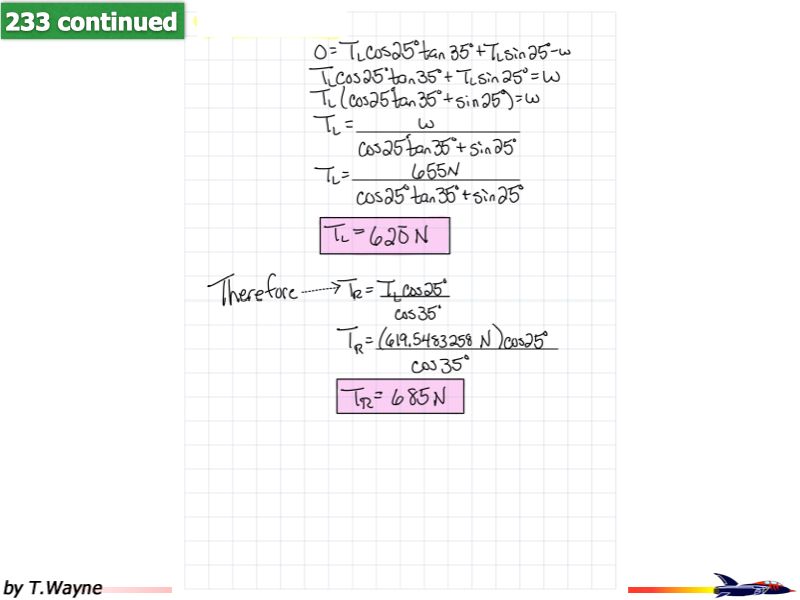 233 continued
0=T_L cos25°tan35°+T_L sin25°-w
T_L cos25°tan35°+T_L sin25°=w
T_L(cos25°tan35°+sin25°)=w
T_L= w
cos25°tan35°+sin25°
T_L= 655N
cos25°tan35°+sin25°
T_L=620N
Therefore → T_R= T_L cos25°
cos35°
T_R=(619.5483258 N)cos25°
cos35°
T_R=685N
by T.Wayne